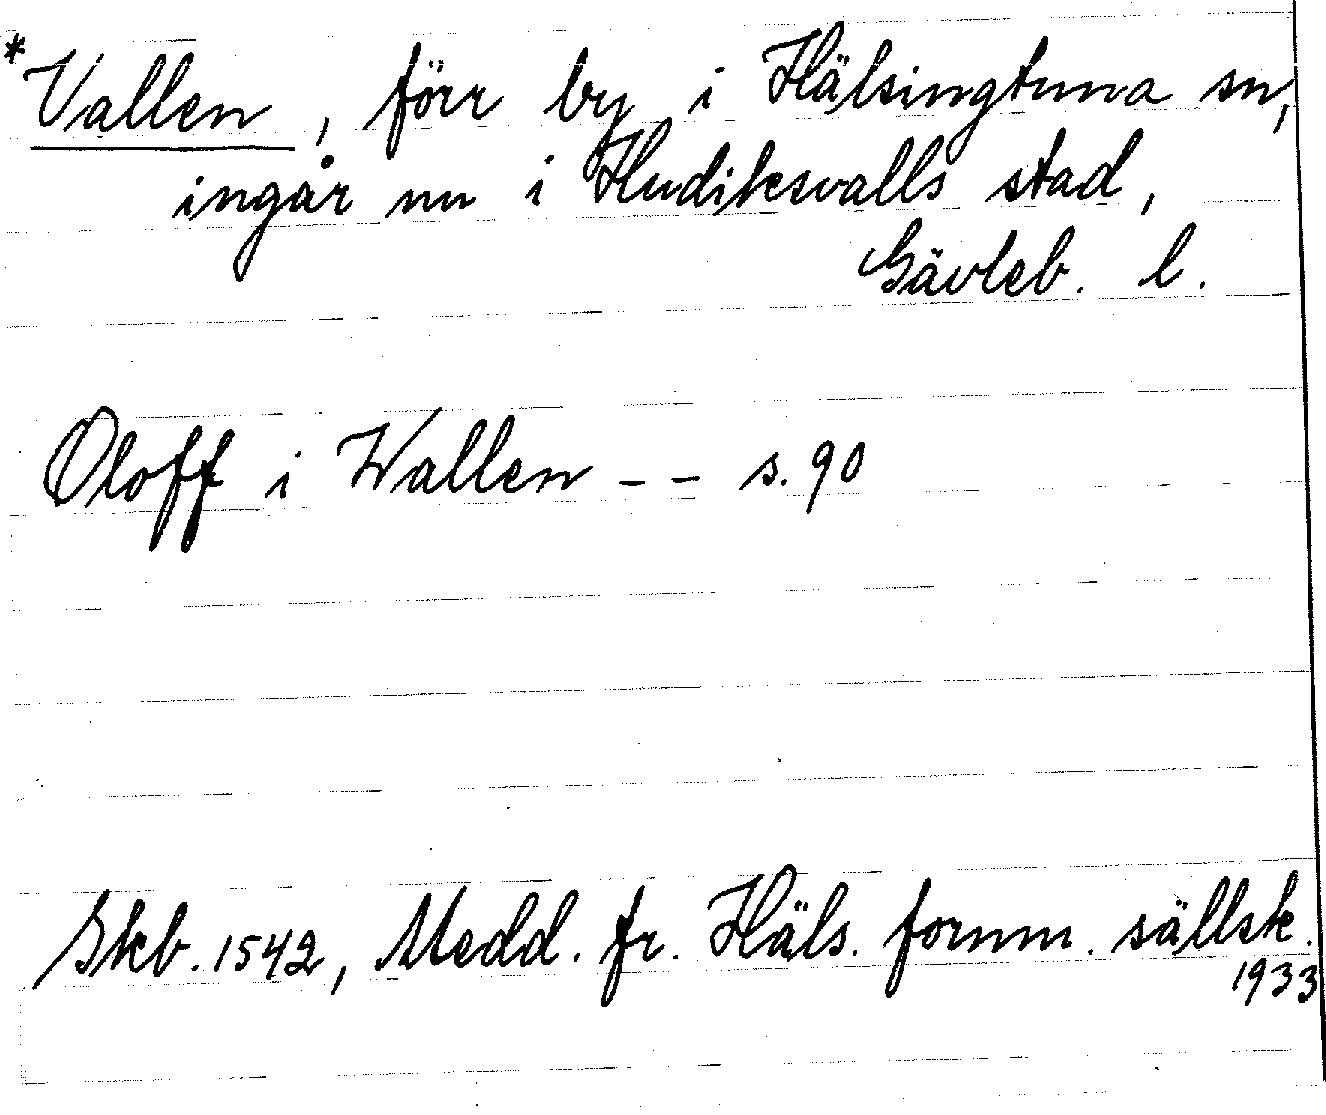 *Vallen, förr by i Hälsingtuna sn,
ingår nu i Hudiksvalls stad,
Gävleb. l.
Oloff i Wallen - - s. 90
Skb. 1542, Medd. fr. Häls. fornm. sällsk.
1933